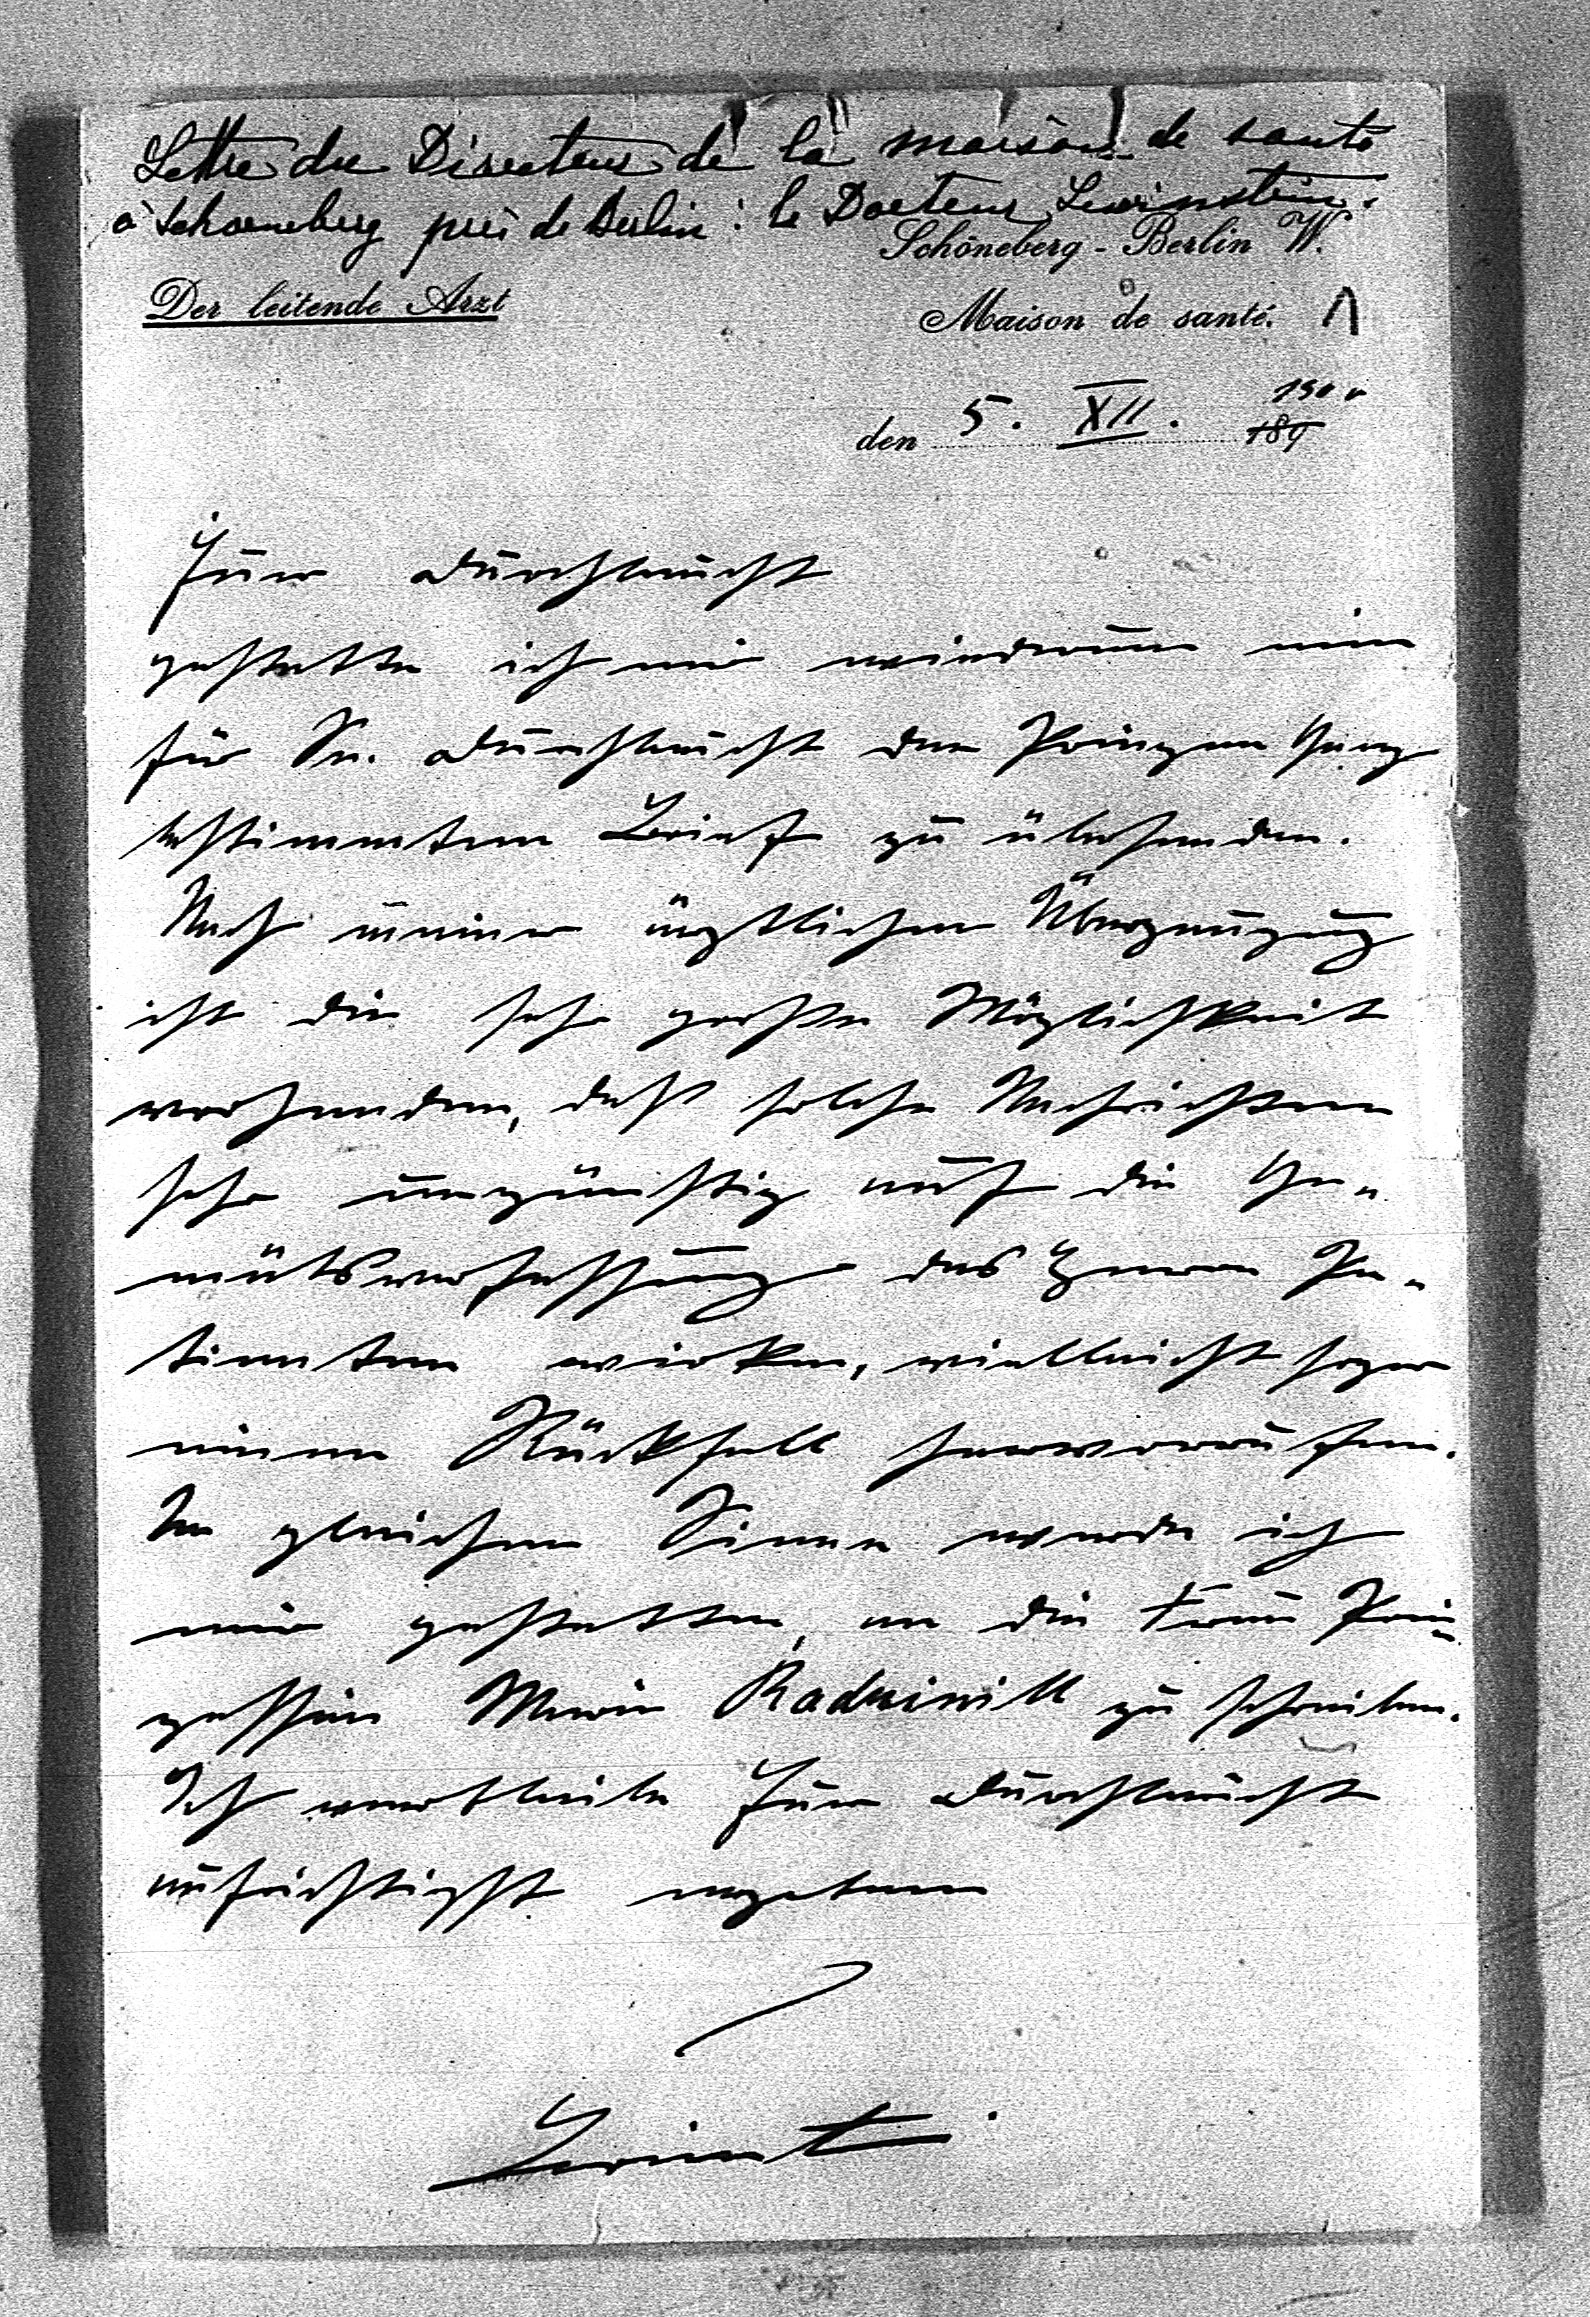 Lettre du Directeur de la maison de santé
à Schoeneberg près de Berlin : le Docteur Lewinstein.
Schöneberg - Berlin W.
Der leitende Arzt
Maison de santé.
den 5. XII. 189 1900
Euer Durchlaucht
gestatte ich mir wiederum einen
für Se. Durchlaucht den Prinzen Georg
bestimmten Brief zu übersenden.
Nach meiner ärztlichen Überzeugung
ist die sehr große Möglichkeit
vorhanden, daß solche Nachrichten
sehr ungünstig auf die Ge-
mütsverfassung des Herrn Pa-
tienten wirken, vielleicht sogar
einen Rückfall hervorrufen.
Im gleichen Sinne werde ich
mir gestatten, an die Frau Prin-
zessin Marie Radziwill zu schreiben.
Ich verbleibe Euer Durchlaucht
aufrichtigst ergebener